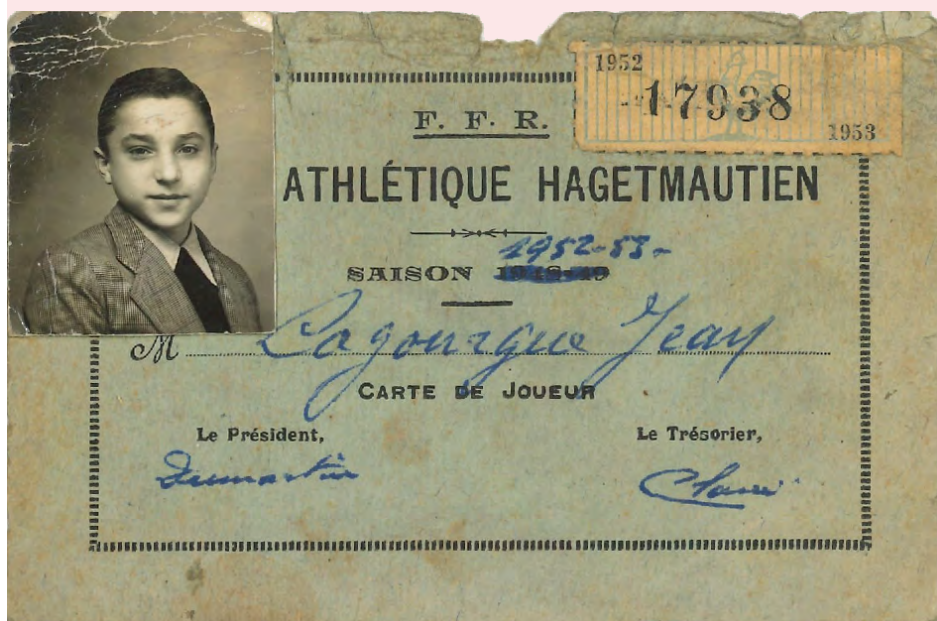 1952
17938
1953
F. F. R.
ATHLÉTIQUE HAGETMAUTIEN
1952-53-
SAISON 1948-49
M Lagourgue Jean
CARTE DE JOUEUR
Le Président,
Le Trésorier,
Dumartin